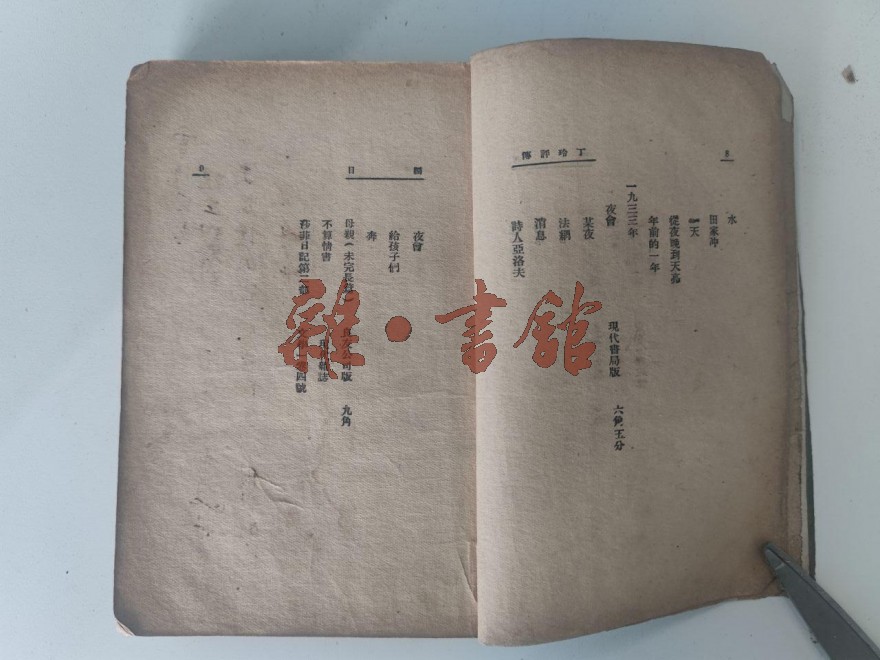 8
丁玲評傳
水
田家冲
一天
從夜晚到天亮
年前的一年
一九三三年
夜會 現代書局版 六角五分
某夜
法網
消息
詩人亞洛夫
9
夜會
給孩子們
奔
母親(未完長篇) 良友公司版 九角
不算情書 雜誌
莎菲日記第二部 四號
雜·書館